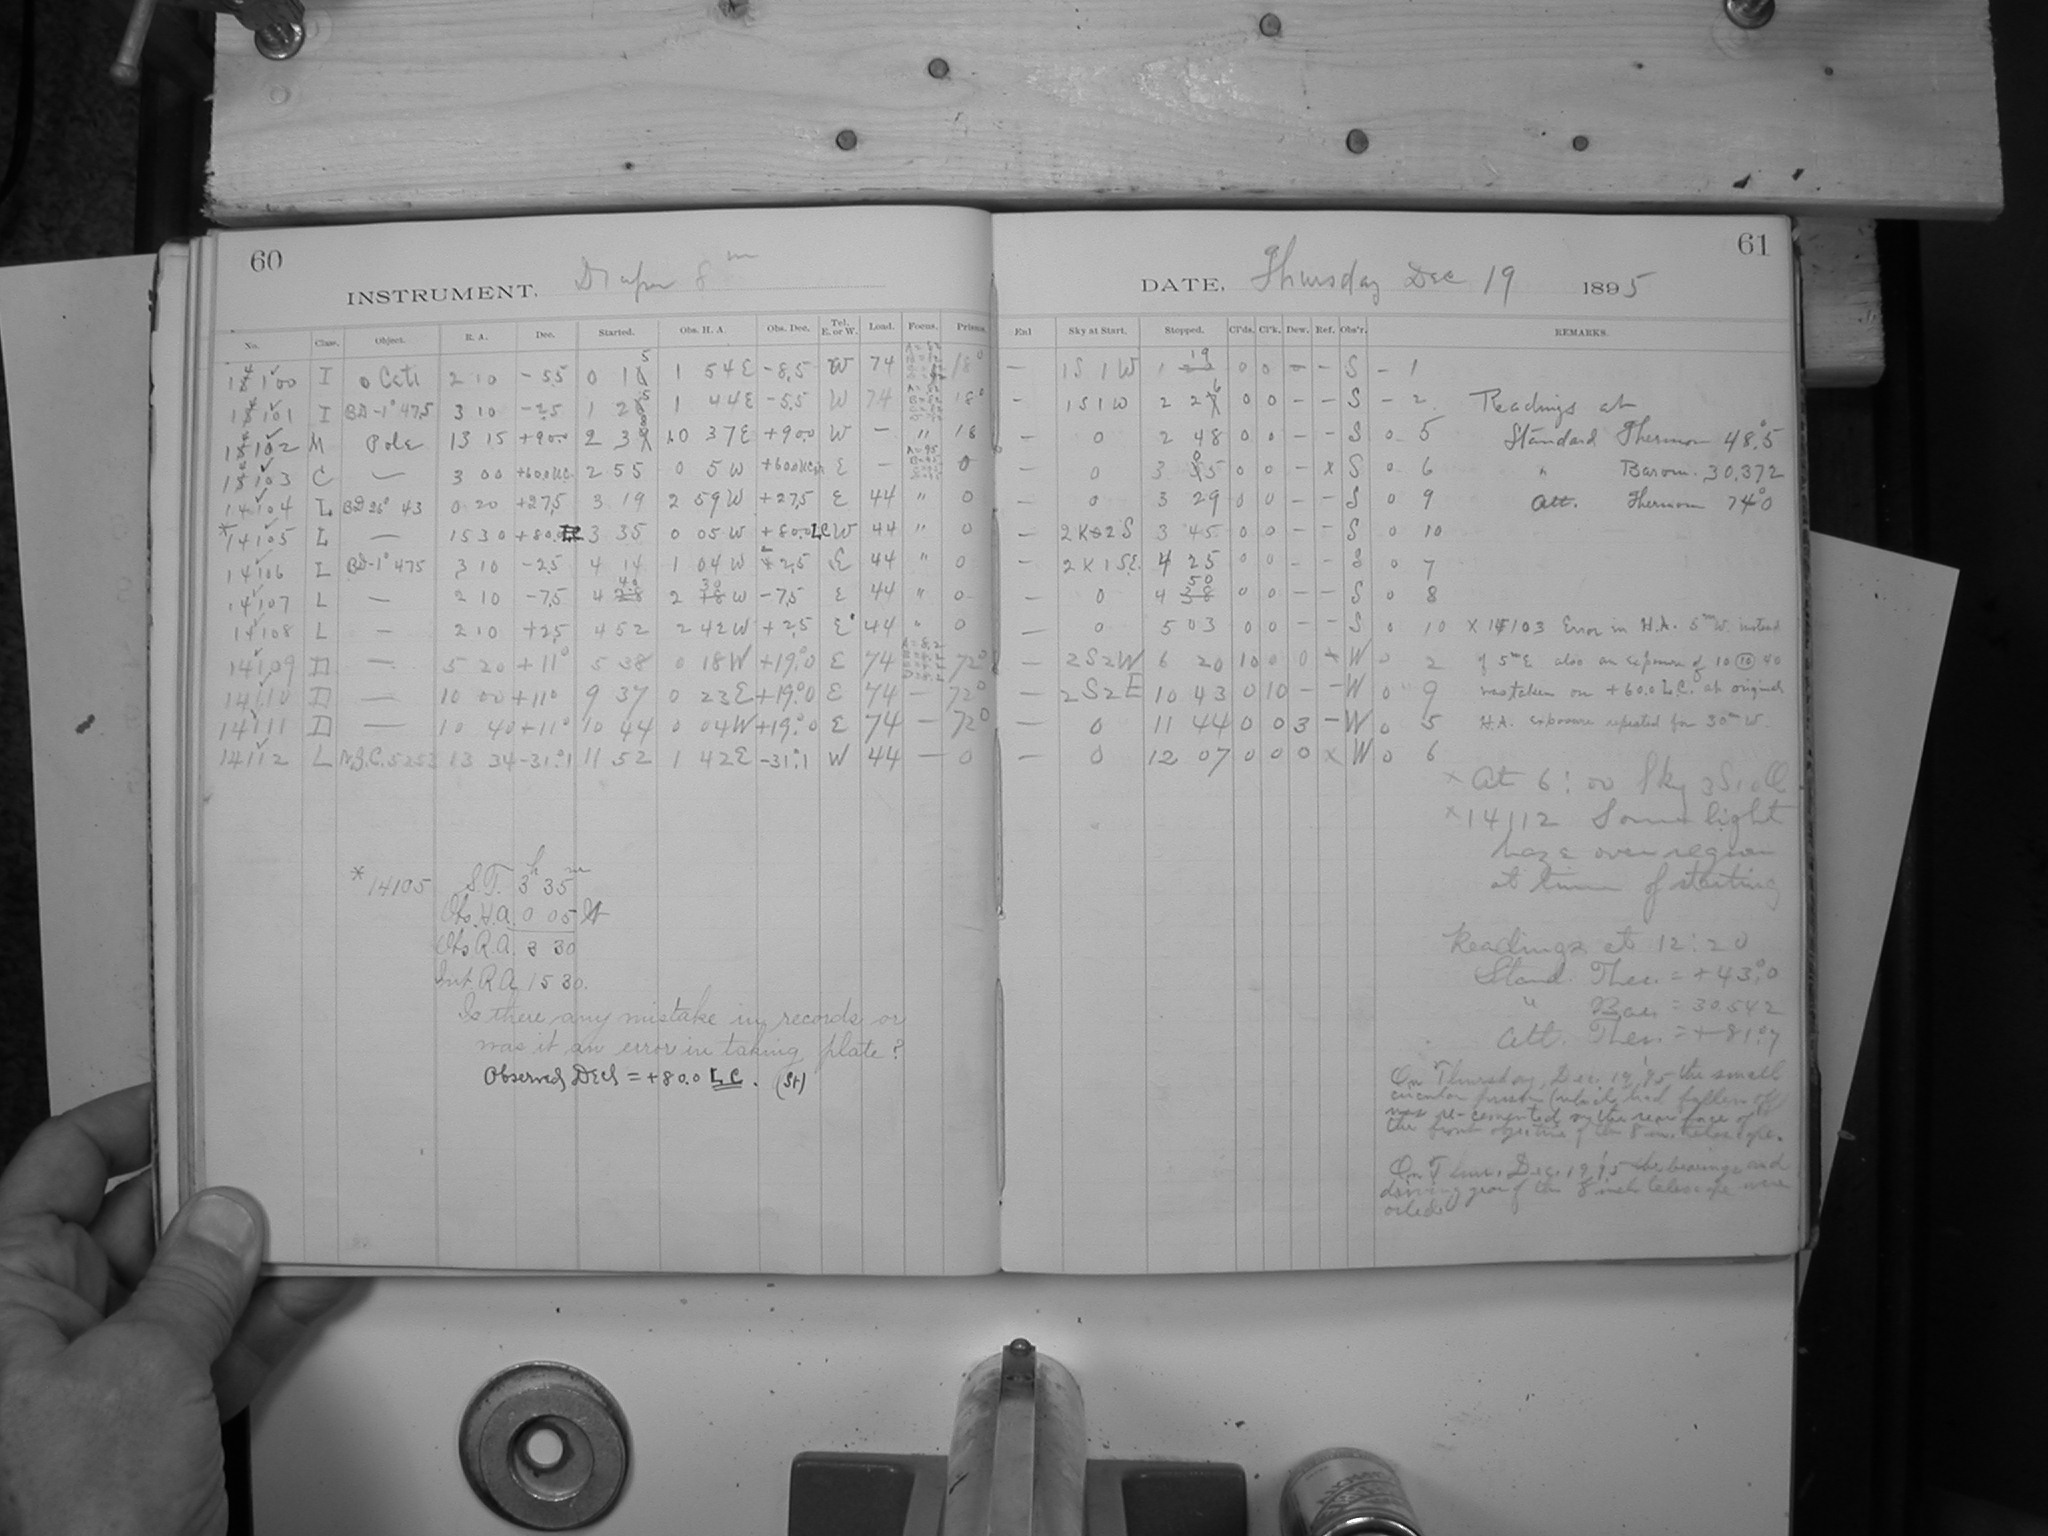 60
INSTRUMENT, Draper 8 in
No. Class. Object. R. A. Dec. Started. Obs. H. A. Obs. Dec. Tel. E. or W. Load. Focus. Prisms.
14100 I o Ceti 2 10 -5.5 0 1 5 1 54 E -8.5 W 74 18°
14101 I BD -1° 475 3 10 -2.5 1 2 5 1 44 E -5.5 W 74 18°
14102 M Pole 13 15 +90.0 2 3 8 10 37 E +90.0 W — " 18
14103 C — 3 00 +60.0 LC. 2 55 0 5 W +60.0 LC E — 0
14104 L BD 26° 43 0 20 +27.5 3 19 2 59 W +27.5 E 44 " 0
*14105 L — 15 30 +80.0 3 35 0 05 W +80.0 LC W 44 " 0
14106 L BD -1° 475 3 10 -2.5 4 14 1 04 W -2.5 E 44 " 0
14107 L — 2 10 -7.5 4 40 2 30 W -7.5 E 44 " 0
14108 L — 2 10 +2.5 4 52 2 42 W +2.5 E 44 " 0
14109 D — 5 20 +11° 5 38 0 18 W +19°.0 E 74 72°
14110 D — 10 00 +11° 9 37 0 23 E +19°.0 E 74 — 72°
14111 D — 10 40 +11° 10 44 0 04 W +19°.0 E 74 — 72°
14112 L N.G.C. 5253 13 34 -31°.1 11 52 1 42 E -31°.1 W 44 — 0
*14105 S.T. 3h 35m
Obs. H.A. 0 05 W
Obs R.A. 3 30
Int. R.A. 15 30.
Is there any mistake in records or
was it an error in taking plate?
Observed Decl = +80.0 L C. (St)
61
DATE, Thursday Dec 19 1895
Enl Sky at Start. Stopped. Cl'ds. Cl'k. Dew. Ref. Obs'r. REMARKS.
— 1 S 1 W 1 19 0 0 — — S - 1
- 1 S 1 W 2 2 6 0 0 — — S - 2 Readings at
— 0 2 48 0 0 — — S 0 5 Standard Thermom 48°.5
— 0 3 0 5 0 0 — x S 0 6 " Barom. 30.372
— 0 3 29 0 0 — — S 0 9 Att. Thermom 74°0
— 2 S 3 45 0 0 — — S 0 10
— 2 X 1 S.E. 4 25 0 0 — — S 0 7
— 0 4 50 0 0 — — S 0 8
— 0 5 03 0 0 — — S 0 10 X 14103 Error in H.A. 5m W. instead
— 2 S 2 W 6 20 10 0 0 x W 0 2 of 5m E also an exposure of 10 (10) 40
— 2 S 2 E 10 43 0 10 — — W 0 9 was taken on +60.0 L.C. at original
— 0 11 44 0 0 3 — W 0 5 H.A. exposure repeated for 30m W.
— 0 12 07 0 0 0 x W 0 6
x At 6:00 Sky
x 14112 Some light
haze over region
at time of starting
Readings at 12:20
Stand. Ther. = +43°.0
" Bar. = 30.542
Att. Ther. = +81°.7
On Thursday, Dec. 19, '95 the small
circular prism (which had fallen off)
was re-cemented on the rear face of
the front objective of the 8 in. telescope.
On Thur. Dec. 19, '95 the bearings and
driving gear of the 8 inch telescope were
oiled.